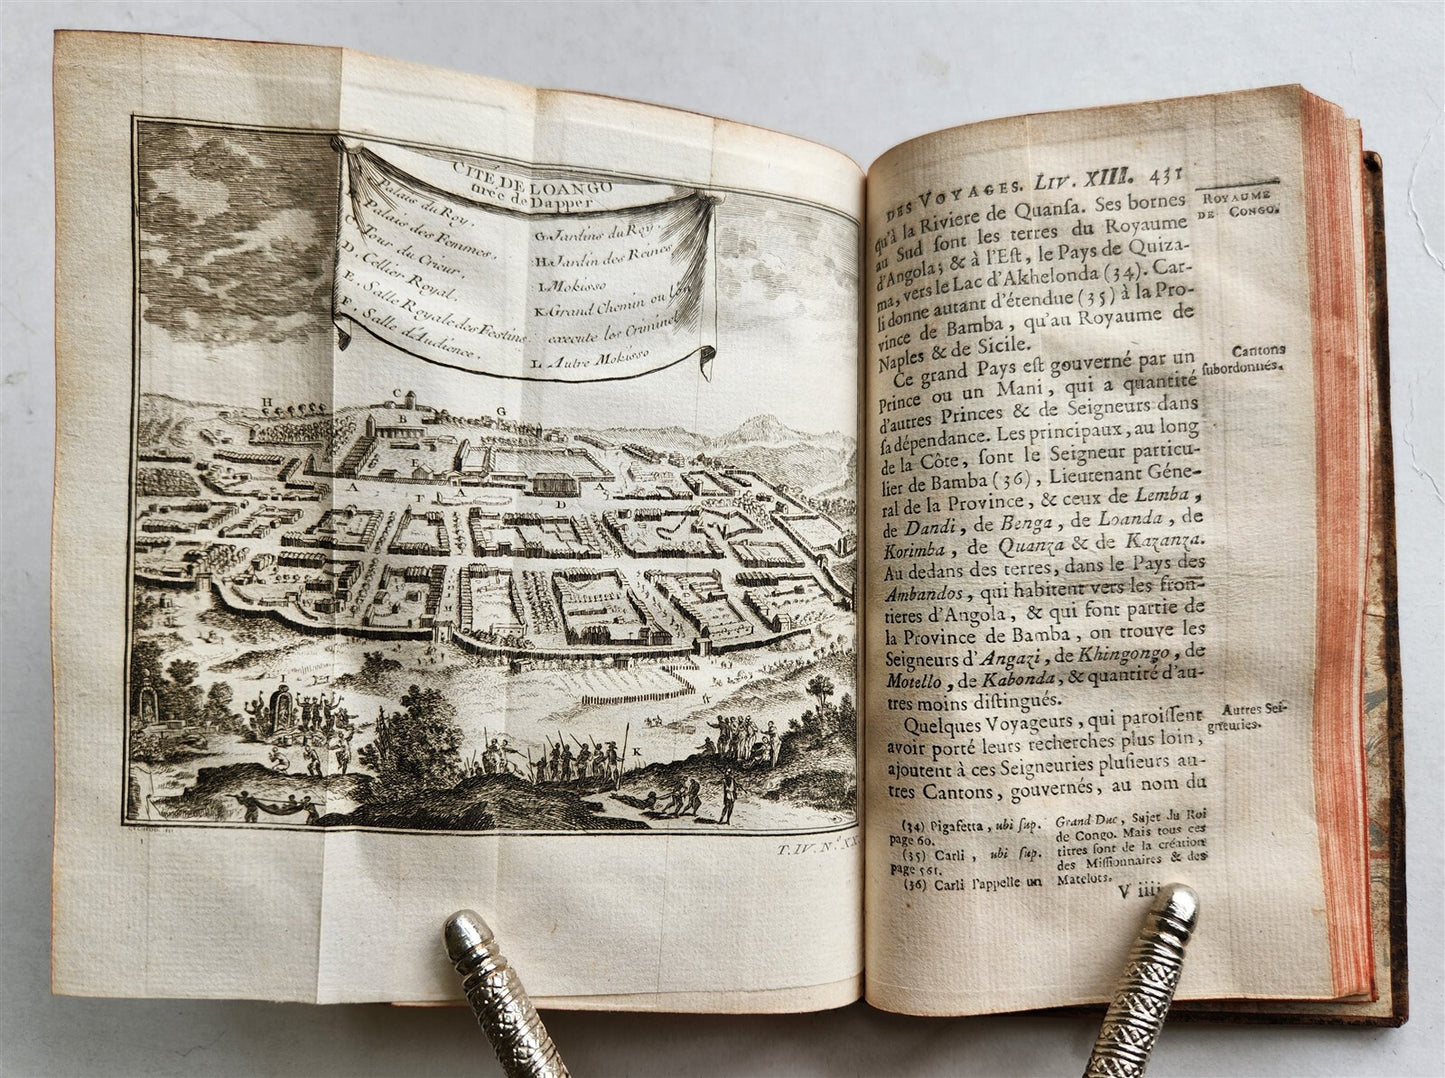 CITÉ DE LOANGO
tirée de Dapper
Palais du Roy,
B. Palais des Femmes,
C. Tour du Crieur,
D. Cellier Royal,
E. Salle Royale des Festins,
F. Salle d'Audience,
G. Jardins du Roy,
H. Jardin des Reines
I. Mokisso
K. Grand Chemin ou l'on
execute les Criminel
L. Autre Mokisso
H
C
G
B
E
A
F
A
A
D
I
K
T. IV. N.° XX
DES VOYAGES. LIV. XIII. 431
ROYAUME
DE CONGO.
qu'à la Riviere de Quansa. Ses bornes
au Sud sont les terres du Royaume
d'Angola; & à l'Est, le Pays de Quiza-
ma, vers le Lac d'Akhelonda (34). Car-
li donne autant d'étendue (35) à la Pro-
vince de Bamba, qu'au Royaume de
Naples & de Sicile.
Ce grand Pays est gouverné par un
Prince ou un Mani, qui a quantité
d'autres Princes & de Seigneurs dans
sa dépendance. Les principaux, au long
de la Côte, sont le Seigneur particu-
lier de Bamba (36), Lieutenant Géne-
ral de la Province, & ceux de Lemba,
de Dandi, de Benga, de Loanda, de
Korimba, de Quanza & de Kazanza.
Au dedans des terres, dans le Pays des
Ambandos, qui habitent vers les fron-
tieres d'Angola, & qui font partie de
la Province de Bamba, on trouve les
Seigneurs d'Angazi, de Khingongo, de
Motello, de Kabonda, & quantité d'au-
tres moins distingués.
Quelques Voyageurs, qui paroissent
avoir porté leurs recherches plus loin,
ajoutent à ces Seigneuries plusieurs au-
tres Cantons, gouvernés, au nom du
Cantons
subordonnés.
Autres Sei-
gneuries.
(34) Pigafetta, ubi sup.
page 60.
(35) Carli, ubi sup.
page 561.
(36) Carli l'appelle un
Grand Duc, Sujet du Roi
de Congo. Mais tous ces
titres sont de la création
des Missionnaires & des
Matelots.
V iiij